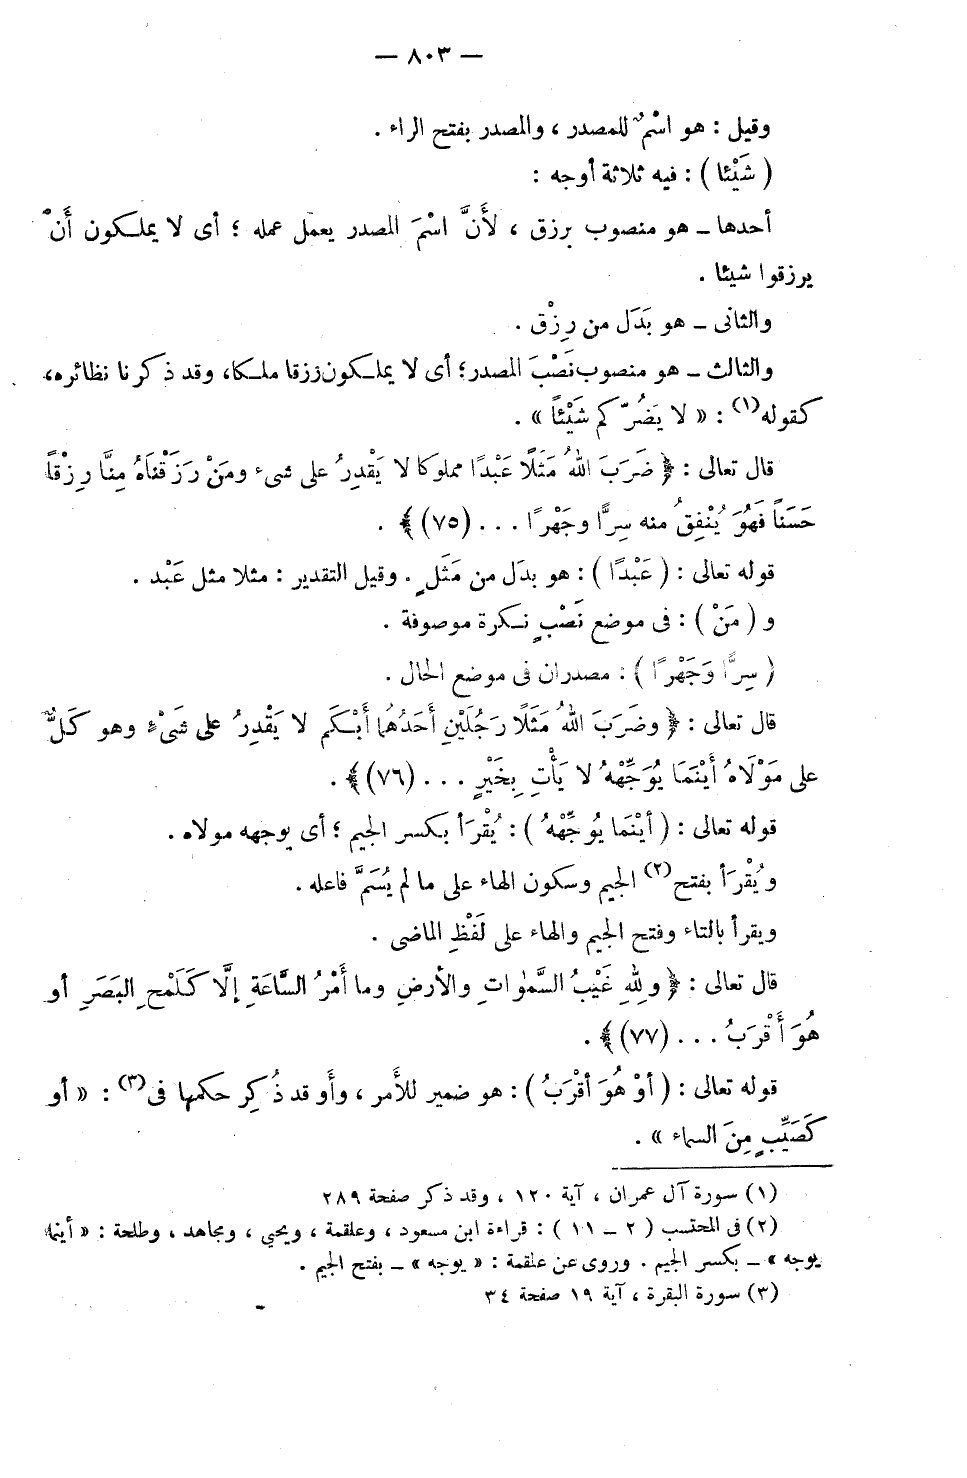 — ٨٠٣ —
وقيل : هو اسْمٌ للمصدر ، والمصدر بفتح الراء .
( شَيْئا ) : فيه ثلاثة أوجه :
أحدها – هو منصوب برزق ، لأَنَّ اسْمَ المصدر يعمل عمله ؛ أى لا يملكون أَنْ
يرزقوا شيئا .
والثانى – هو بَدَل من رِزْق .
والثالث – هو منصوب نَصْبَ المصدر؛ أى لا يملكون رزقا ملكا، وقد ذكرنا نظائره،
كقوله(١) : « لا يَضُرّكم شَيْئاً » .
قال تعالى : ﴿ ضَرَبَ اللهُ مَثَلًا عَبْدًا مملوكا لا يَقْدِرُ على شىء ومَنْ رَزَقْنَاهُ مِنَّا رِزْقاً
حَسَناً فَهُوَ يُنْفِقُ منه سِرًّا وجَهْرًا . . . (٧٥) ﴾ .
قوله تعالى : ( عَبْدًا ) : هو بدَل من مَثَلٍ . وقيل التقدير : مثلا مثل عَبْد .
و ( مَنْ ) : فى موضع نَصْبٍ نكرة موصوفة .
( سِرًّا وَجَهْرًا ) : مصدران فى موضع الحال .
قال تعالى : ﴿ وضَرَبَ اللهُ مَثَلًا رَجُلَيْنِ أَحَدُهُما أَبْكَم لا يَقْدِرُ على شَىْءٍ وهو كَلٌّ
على مَوْلَاهُ أَيْنَمَا يُوَجِّهْهُ لا يَأْتِ بِخَيْرٍ . . . (٧٦) ﴾ .
قوله تعالى : ( أيْنَما يُوجِّهْهُ ) : يُقْرَأ بكسر الجيم ؛ أى يوجهه مولاه .
ويُقْرَأ بفتح(٢) الجيم وسكون الهاء على ما لم يُسَمَّ فاعله .
ويقرأ بالتاء وفتح الجيم والهاء على لَفْظِ الماضى .
قال تعالى : ﴿ ولِلهِ غَيْبُ السَّمٰواتِ والأرضِ وما أَمْرُ السَّاعَةِ إلَّا كَلَمْحِ البَصَرِ أو
هُوَ أَقْرَبُ . . . (٧٧) ﴾ .
قوله تعالى : ( أوْ هُوَ أقْرَبُ ) : هو ضمير للأَمر ، وأَو قد ذُكِر حكمها فى(٣) : « أو
كَصَيِّبٍ مِنَ السماء » .
(١) سورة آل عمران ، آية ١٢٠ ، وقد ذكر صفحة ٢٨٩
(٢) فى المحتسب ( ٢ – ١١ ) : قراءة ابن مسعود ، وعلقمة ، ويحيى ، ومجاهد ، وطلحة : « أينما
يوجه » – بكسر الجيم . وروى عن علقمة : « يوجه » – بفتح الجيم .
(٣) سورة البقرة ، آية ١٩ صفحة ٣٤